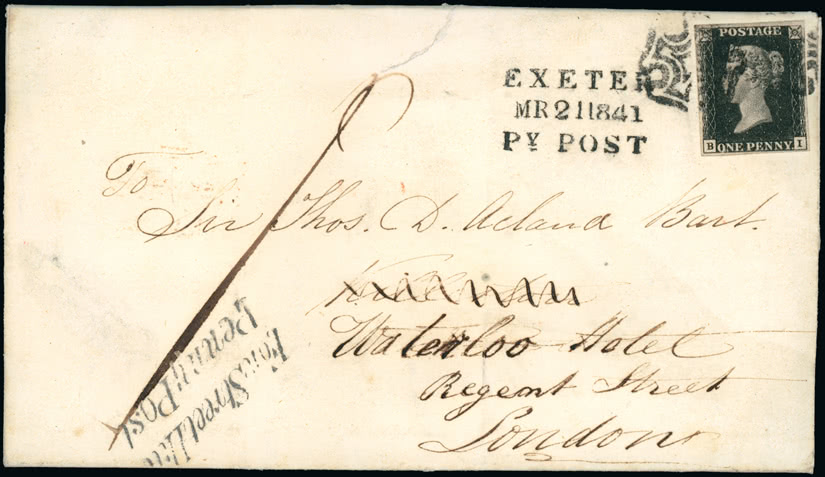 POSTAGE
B ONE PENNY I
EXETER
MR 21 1841
PY POST
To
Sir Thos. D. Acland Bart.
Waterloo Hotel
Regent Street
London
Penny Post